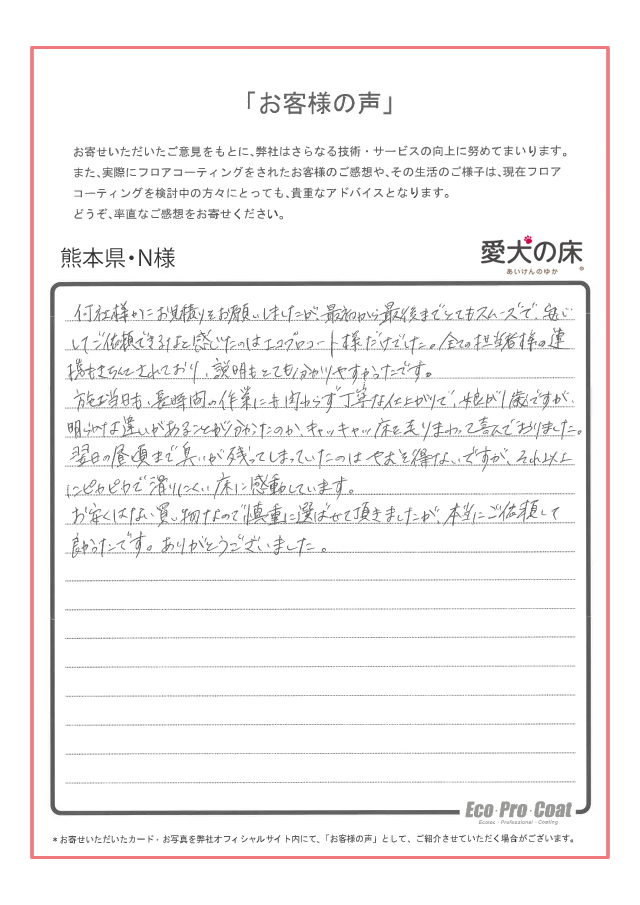 「お客様の声」
お寄せいただいたご意見をもとに、弊社はさらなる技術・サービスの向上に努めてまいります。
また、実際にフロアコーティングをされたお客様のご感想や、その生活のご様子は、現在フロア
コーティングを検討中の方々にとっても、貴重なアドバイスとなります。
どうぞ、率直なご感想をお寄せください。
熊本県・N様
愛犬の床
あいけんのゆか
何社様かにお見積りをお願いしましたが、最初から最後までとてもスムーズで、安心
してご依頼できるなと感じたのはエコプロコート様だけでした。全ての担当者様の連
携もきちんとされており、説明もとても分かりやすかったです。
施工当日も、長時間の作業にも関わらず丁寧な仕上がりで、娘が1歳ですが、
明らかな違いがあることが分かったのか、キャッキャッ床を走りまわって喜んでおりました。
翌日の昼頃まで臭いが残ってしまっていたのはやむを得ないですが、それ以上
にピカピカで滑りにくい床に感動しています。
お安くはない買い物なので慎重に選ばせて頂きましたが、本当にご依頼して
良かったです。ありがとうございました。
Eco・Pro・Coat
Ecoless・Professional・Coating
*お寄せいただいたカード・お写真を弊社オフィシャルサイト内にて、「お客様の声」として、ご紹介させていただく場合がございます。